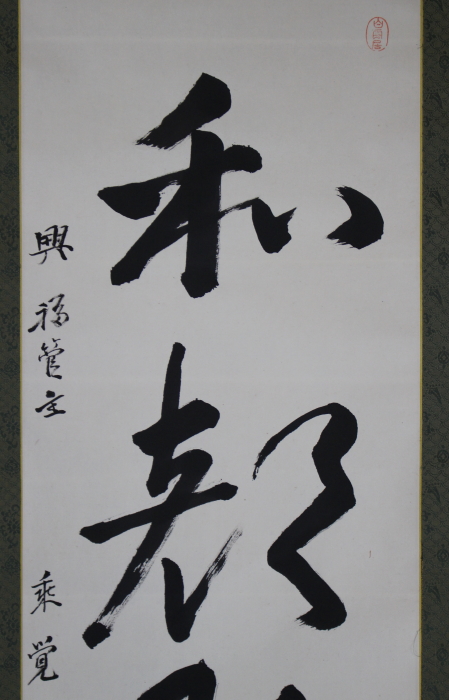 和顔
興福管主 乗覚